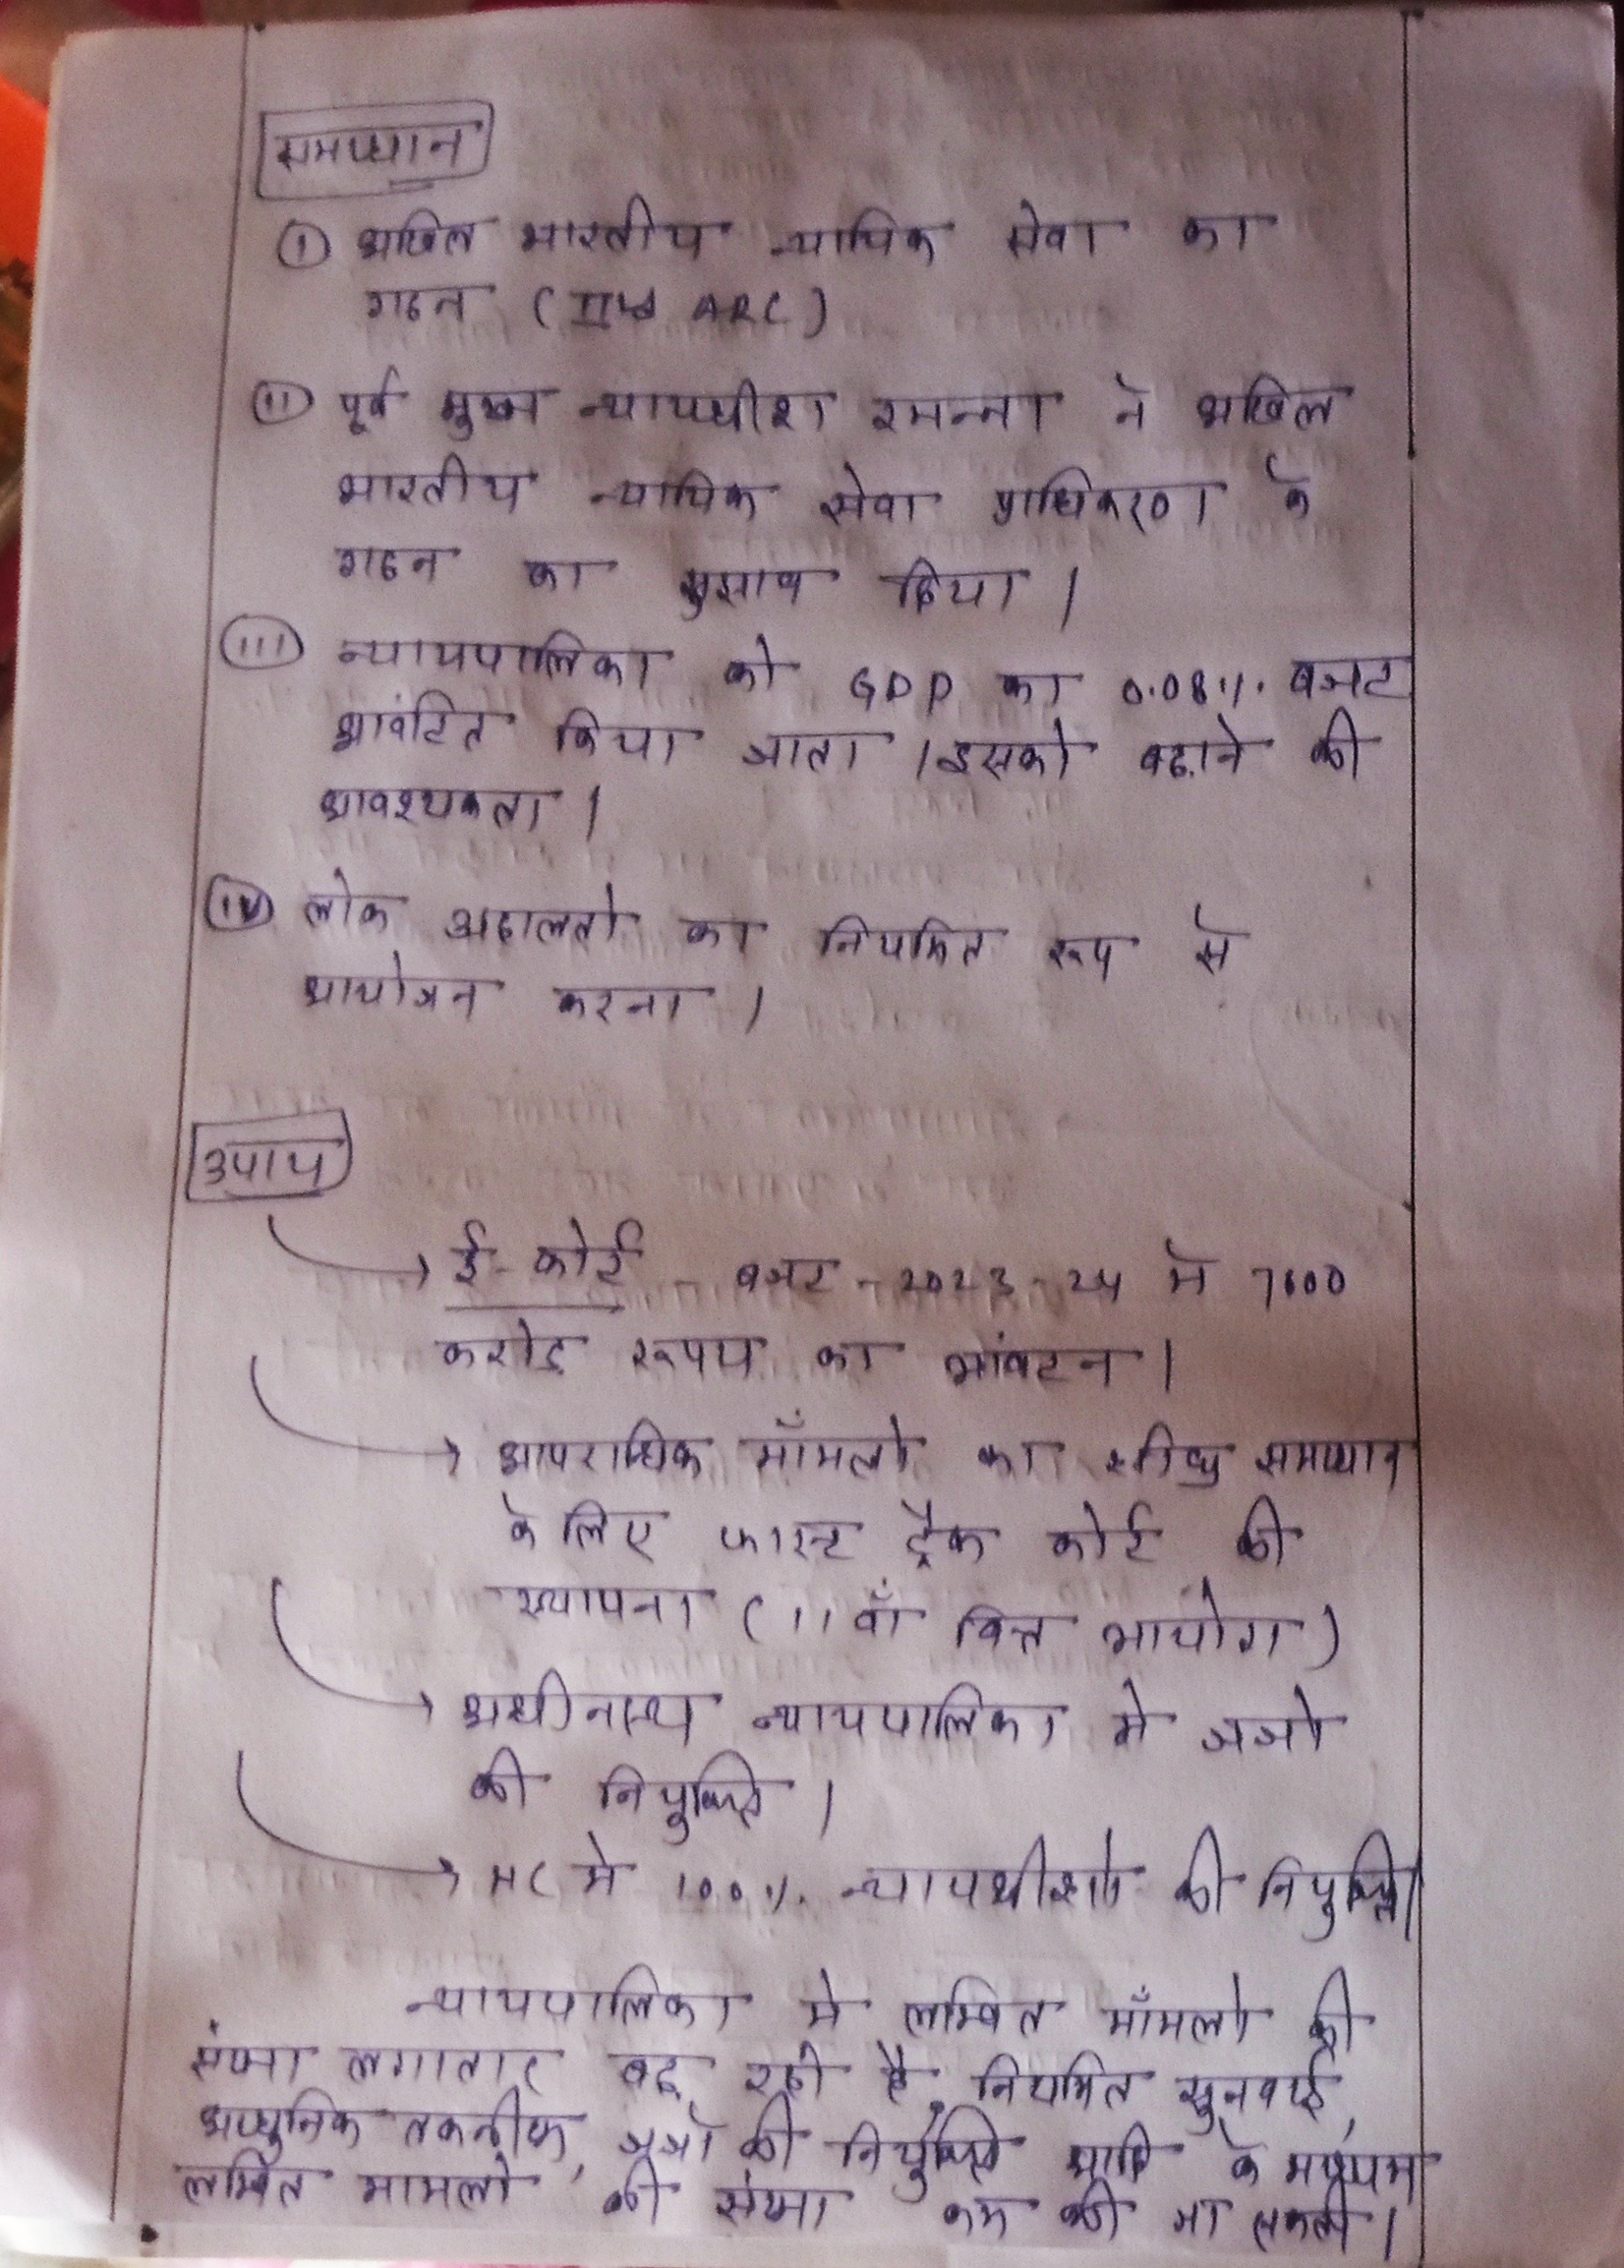 समाधान
① अखिल भारतीय न्यायिक सेवा का
गठन (IInd ARC)
(ii) पूर्व मुख्य न्यायधीश रमन्ना ने अखिल
भारतीय न्यायिक सेवा प्राधिकरण के
गठन का सुझाव दिया।
(iii) न्यायपालिका को GDP का 0.08% बजट
आवंटित किया जाता। इसको बढ़ाने की
आवश्यकता।
(iv) लोक अदालतो का नियमित रूप से
आयोजन करना।
उपाय
→ ई-कोर्ट - बजट - 2023-24 मे 7000
करोड़ रूपय का आंवटन।
→ आपराधिक माँमलो का शीघ्र समाधान
के लिए फास्ट ट्रैक कोर्ट की
स्थापना (11वाँ वित्त आयोग)
→ अधीनस्थ न्यायपालिका मे जजो
की नियुक्ति।
→ HC मे 100% न्यायधीशो की नियुक्ति।
न्यायपालिका मे लम्बित माँमलो की
संख्या लगातार बढ़ रही है, नियमित सुनवाई,
आधुनिक तकनीक, जजो की नियुक्ति आदि के माध्यम
लम्बित मामलो की संख्या कम की जा सकती।